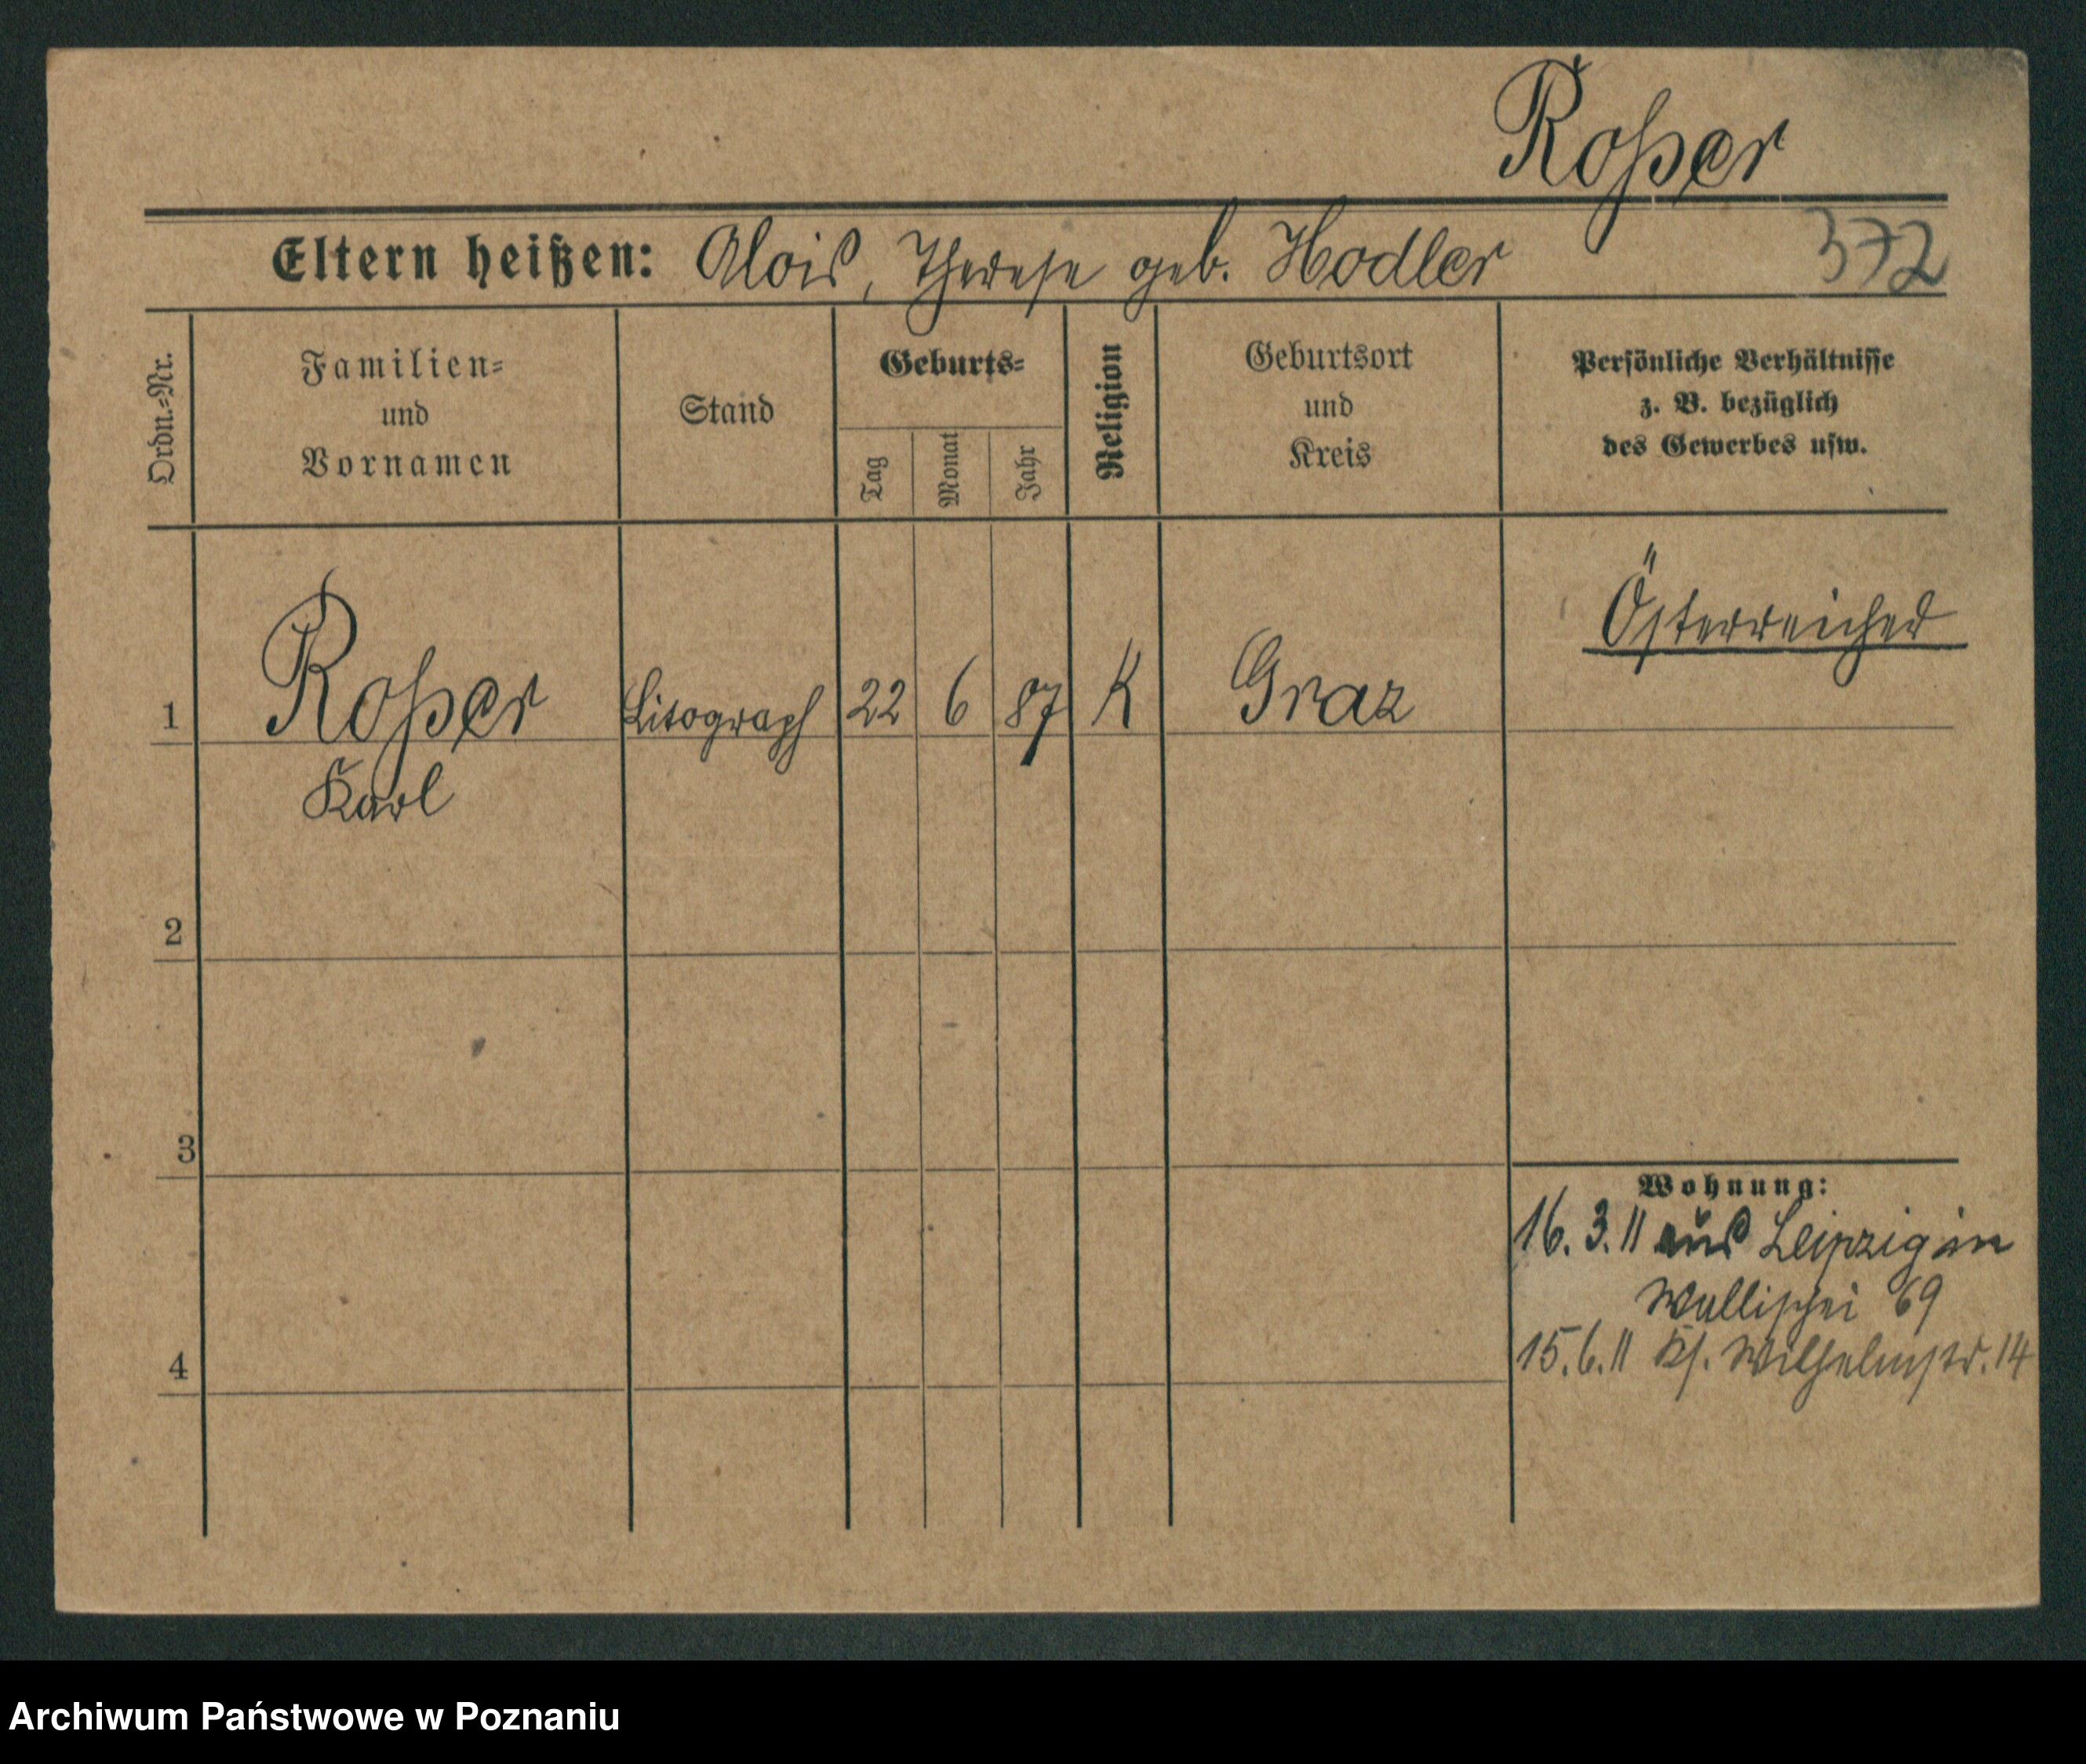 Roßer
Eltern heißen: Alois, Therese geb. Hodler
372
Ordn.-Nr.
Familien-
und
Vornamen
Stand
Geburts-
Tag
Monat
Jahr
Religion
Geburtsort
und
Kreis
Persönliche Verhältnisse
z. B. bezüglich
des Gewerbes usw.
Österreicher
1 Roßer Litograph 22 6 87 K Graz
Karl
2
3
Wohnung:
16. 3. 11 aus Leipzig in
Wallischei 69
4
15. 6. 11 Ks. Wilhelmstr. 14
Archiwum Państwowe w Poznaniu